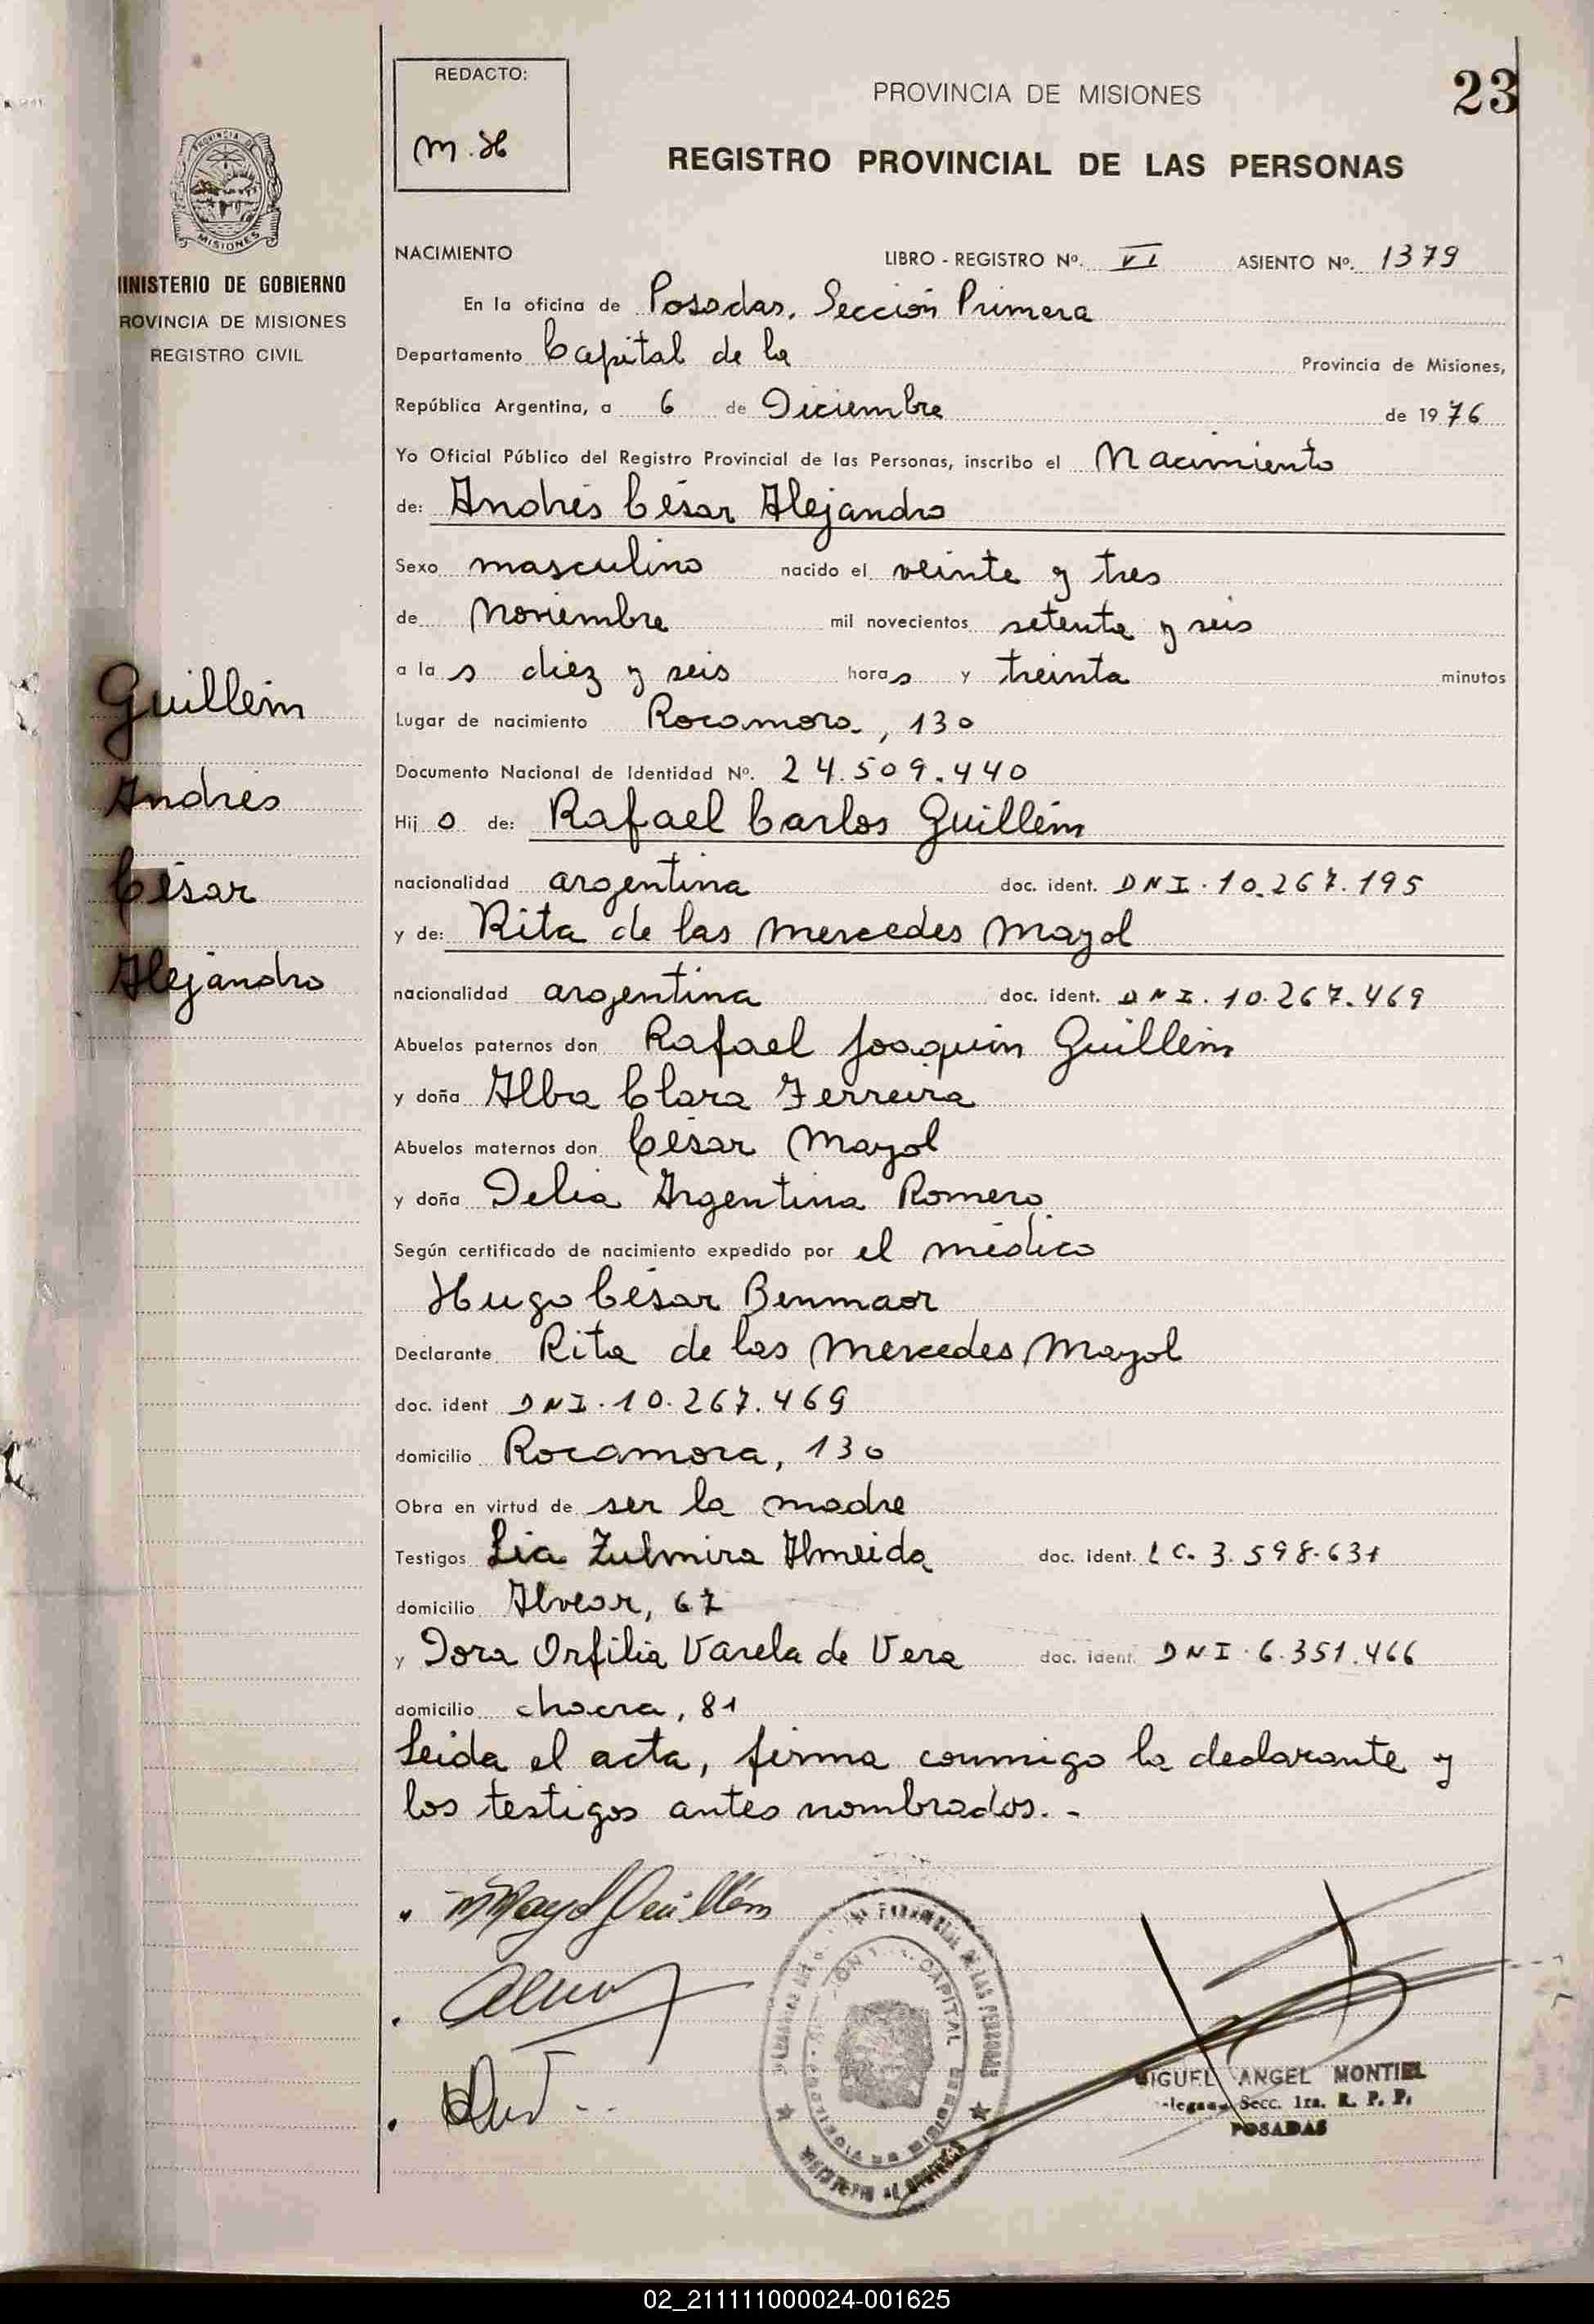 REDACTO:
M.H
PROVINCIA DE MISIONES
23
REGISTRO PROVINCIAL DE LAS PERSONAS
PROVINCIA DE
MISIONES
MINISTERIO DE GOBIERNO
PROVINCIA DE MISIONES
REGISTRO CIVIL
NACIMIENTO LIBRO - REGISTRO Nº. VI ASIENTO Nº. 1379
En la oficina de Posadas, Sección Primera
Departamento Capital de la Provincia de Misiones,
República Argentina, a 6 de Diciembre de 1976
Yo Oficial Público del Registro Provincial de las Personas, inscribo el Nacimiento
de: Andrés César Alejandro
Sexo masculino nacido el veinte y tres
de Noviembre mil novecientos setenta y seis
a la s diez y seis horas y treinta minutos
Lugar de nacimiento Rocamora, 130
Documento Nacional de Identidad Nº. 24.509.440
Hij o de: Rafael Carlos Guillém
nacionalidad argentina doc. ident. DNI. 10.267.195
y de: Rita de las Mercedes Mayol
nacionalidad argentina doc. ident. DNI. 10.267.469
Abuelos paternos don Rafael Joaquín Guillém
y doña Alba Clara Ferreira
Abuelos maternos don César Mayol
y doña Delia Argentina Romero
Según certificado de nacimiento expedido por el médico
Hugo César Benmaor
Declarante Rita de las Mercedes Mayol
doc. ident DNI. 10.267.469
domicilio Rocamora, 130
Obra en virtud de ser la madre
Testigos Lia Zulmira Almeida doc. ident. LC. 3.598.631
domicilio Alvear, 67
y Dora Orfilia Varela de Vera doc. ident. DNI. 6.351.466
domicilio chacra, 81
Leida el acta, firma conmigo la declarante y
los testigos antes nombrados.-
Guillém
Andrés
César
Alejandro
MMayol Guillém
CAPITAL
DE LAS PERSONAS
MIGUEL ANGEL MONTIEL
Secc. 1ra. R. P. P.
POSADAS
02_211111000024-001625